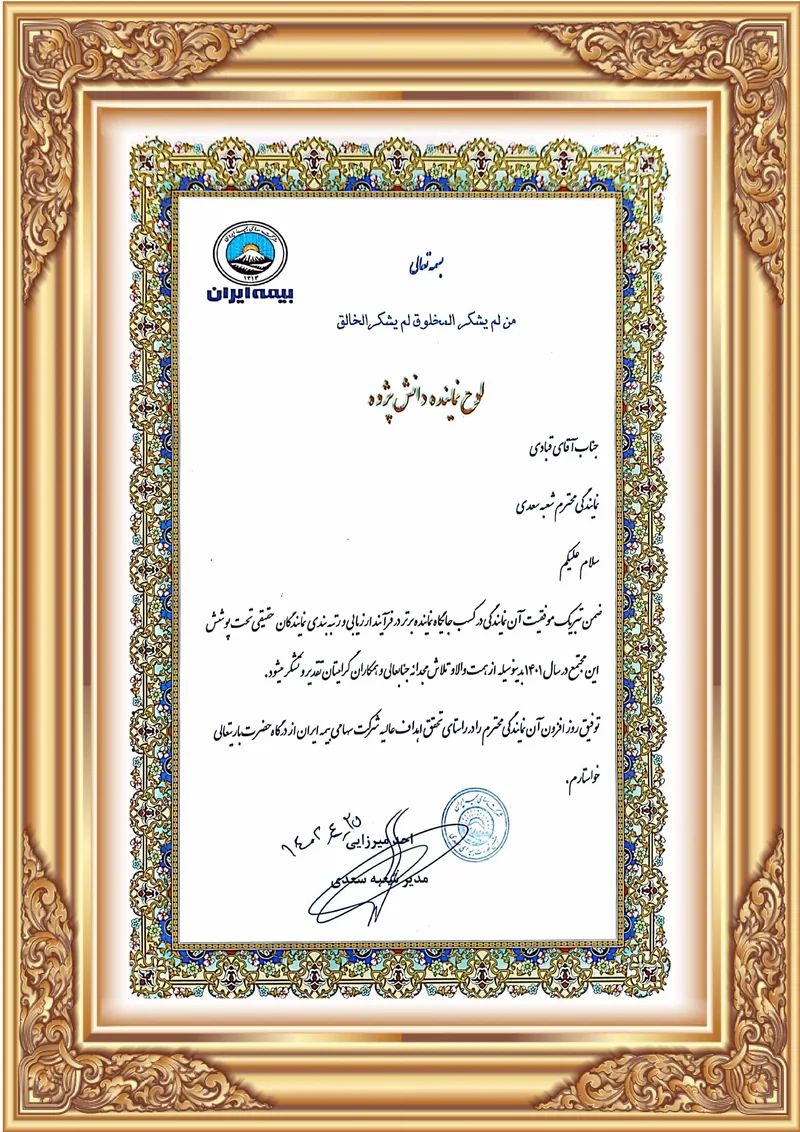 ۱۳۱۳
بیمه ایران
بسمه تعالی
من لم یشکر المخلوق لم یشکر الخالق
لوح نماینده دانش پژوه
جناب آقای قبادی
نمایندگی محترم شعبه سعدی
سلام علیکم
ضمن تبریک موفقیت آن نمایندگی در کسب جایگاه نماینده برتر در فرآیند ارزیابی و رتبه بندی نمایندگان حقیقی تحت پوشش
این مجتمع در سال ۱۴۰۱ بدینوسیله از همت والا و تلاش مجدانه جنابعالی و همکاران گرامیتان تقدیر و تشکر میشود.
توفیق روز افزون آن نمایندگی محترم را در راستای تحقق اهداف عالیه شرکت سهامی بیمه ایران از درگاه حضرت باریتعالی
خواستارم.
احد میرزایی
مدیر شعبه سعدی